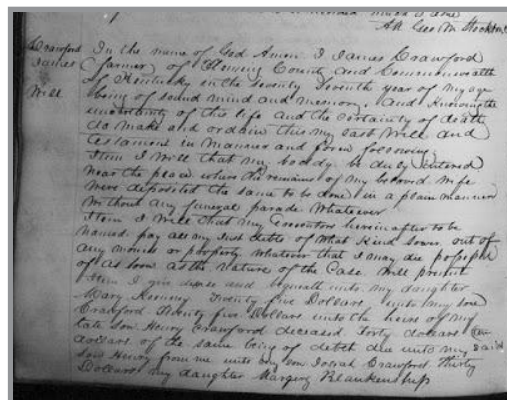 Att Geo. M. Stockton
Crawford
James
Will
In the name of God Amen I James Crawford
(farmer) of Fleming County and Commonwealth
of Kentucky in the seventy seventh year of my age
being of sound mind and memory, and knowing the
uncertainty of this life and the certainty of death
do make and ordain this my last Will and
testament in manner and form following
Item I will that my boddy be duly intered
near the place where the remains of my beloved wife
were deposited the same to be done in a plain manner
without any funeral parade whatever
Item I will that my Executors hereinafter to be
named pay all my Just debts of what kind sover out of
any monies or property whatever that I may die possessed
of as soon as the nature of the Case will permit
Item I give devise and bequeath unto my daughter
Mary Twenty five Dollars unto my son
Crawford Twenty five Dollars unto the heirs of my
late son Henry Crawford deceased Forty dollars
dollars of the same being of debt due unto my said
son Henry from me unto my son Josiah Crawford thirty
Dollars my daughter Margery Blankenship